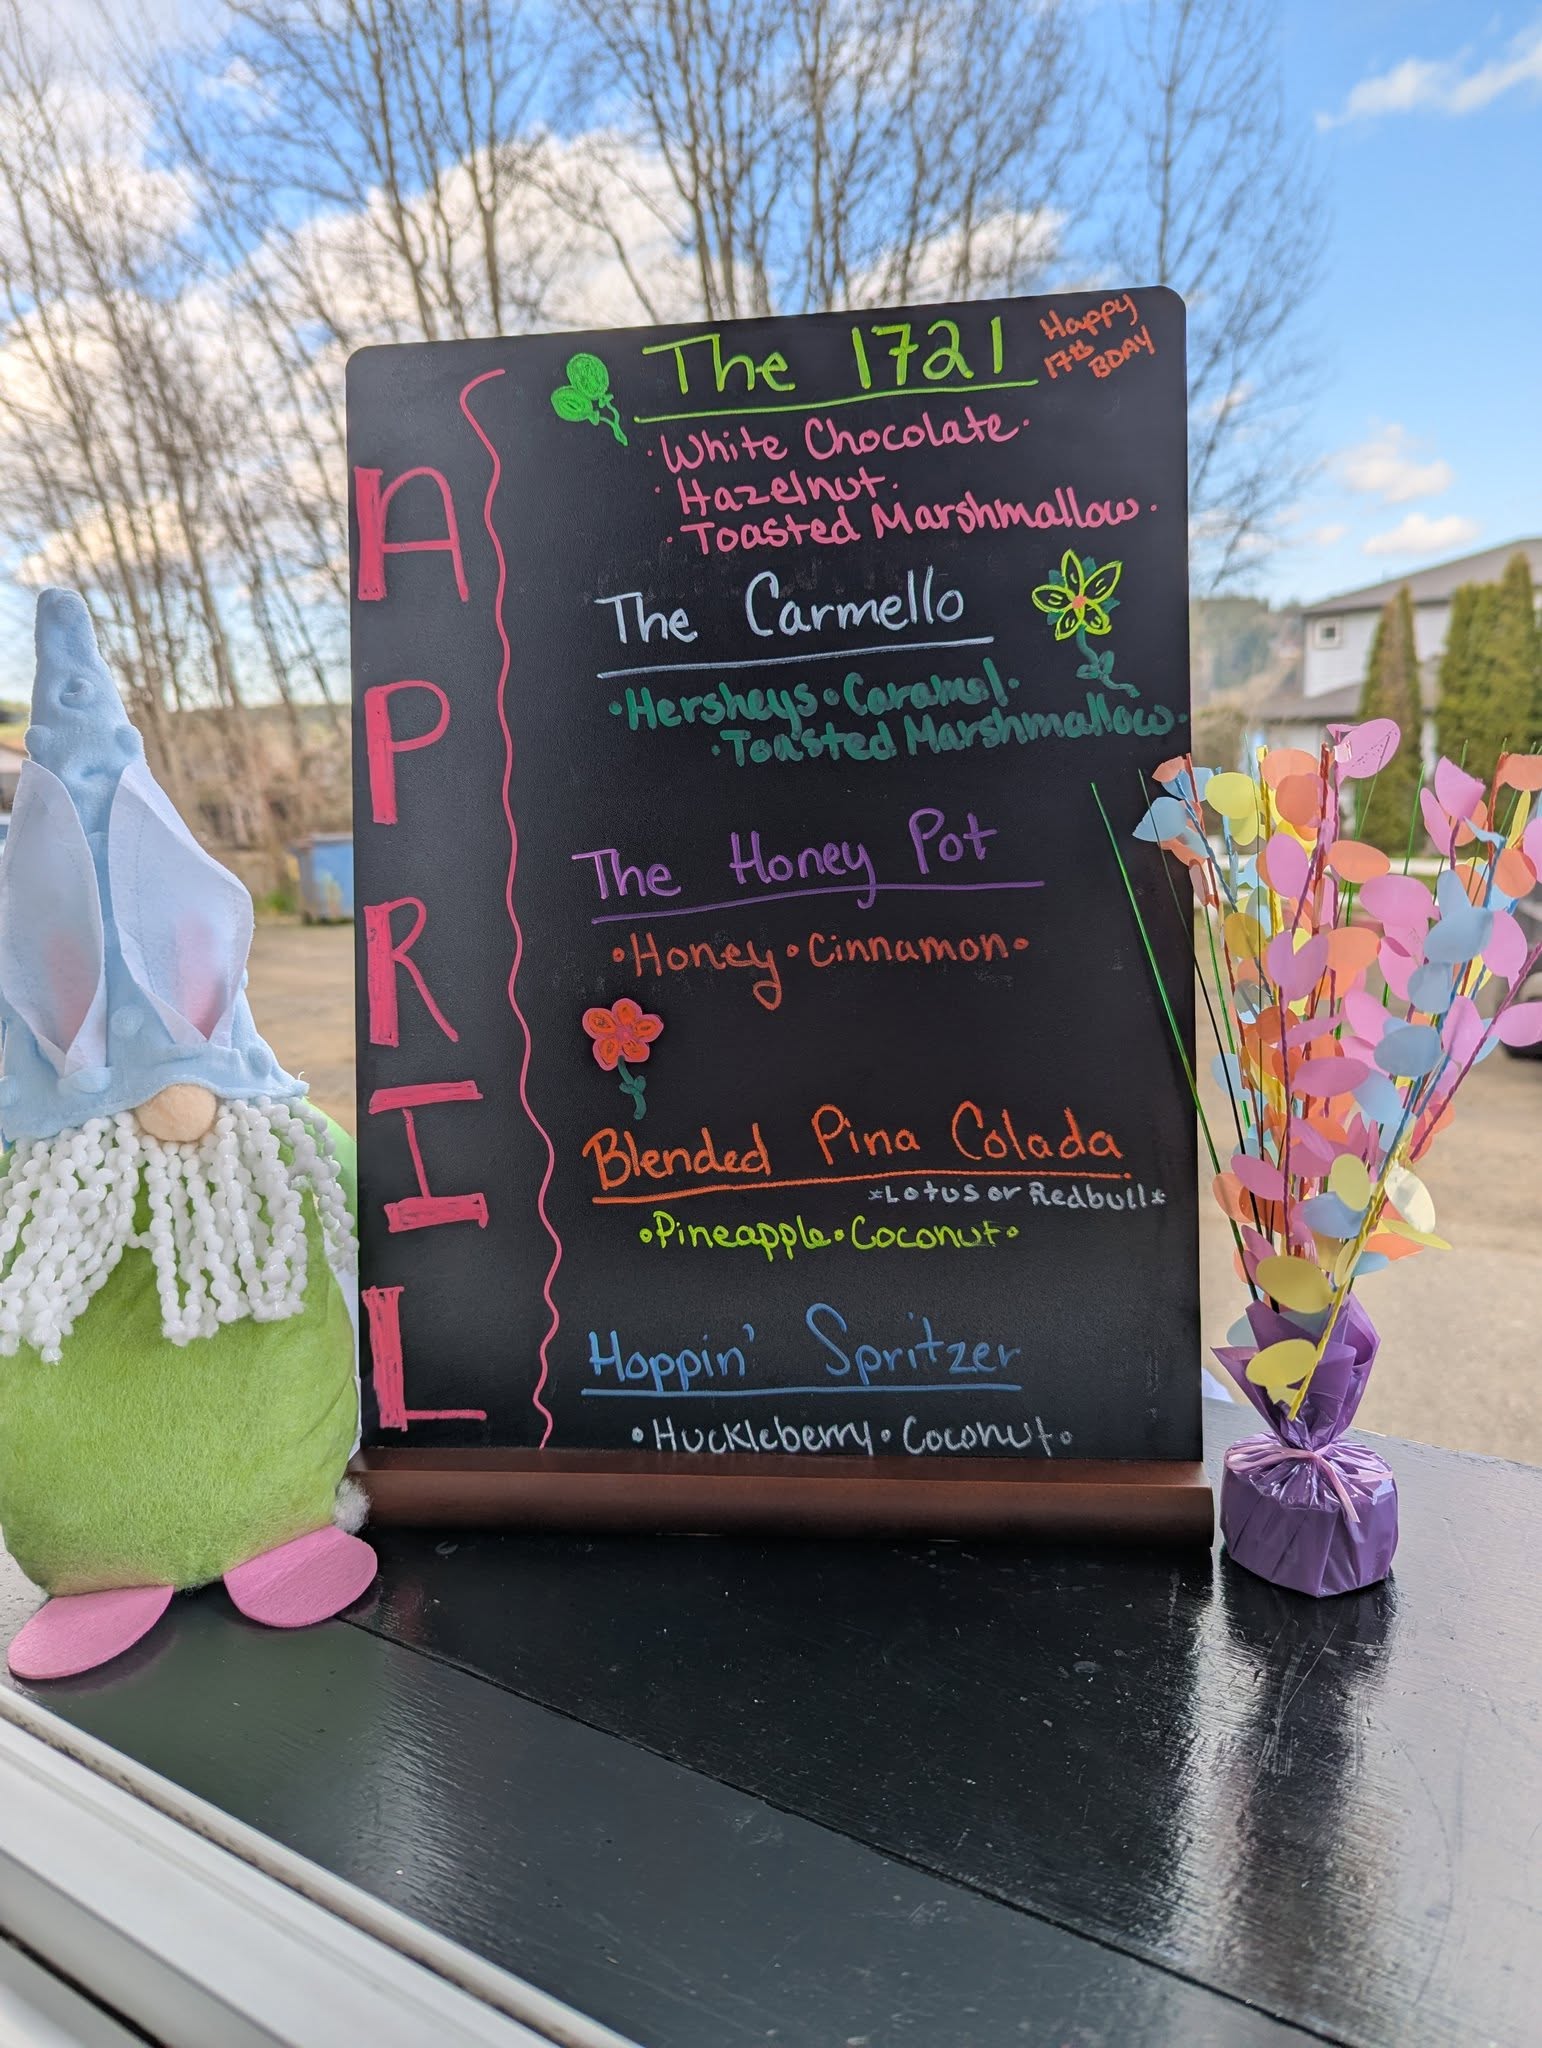 APRIL
The 1721
Happy
17th
BDAY
•White Chocolate•
•Hazelnut•
•Toasted Marshmallow•
The Carmello
•Hersheys•Caramel•
•Toasted Marshmallow•
The Honey Pot
•Honey•Cinnamon•
Blended Pina Colada
*Lotus or Redbull*
•Pineapple•Coconut•
Hoppin' Spritzer
•Huckleberry•Coconut•